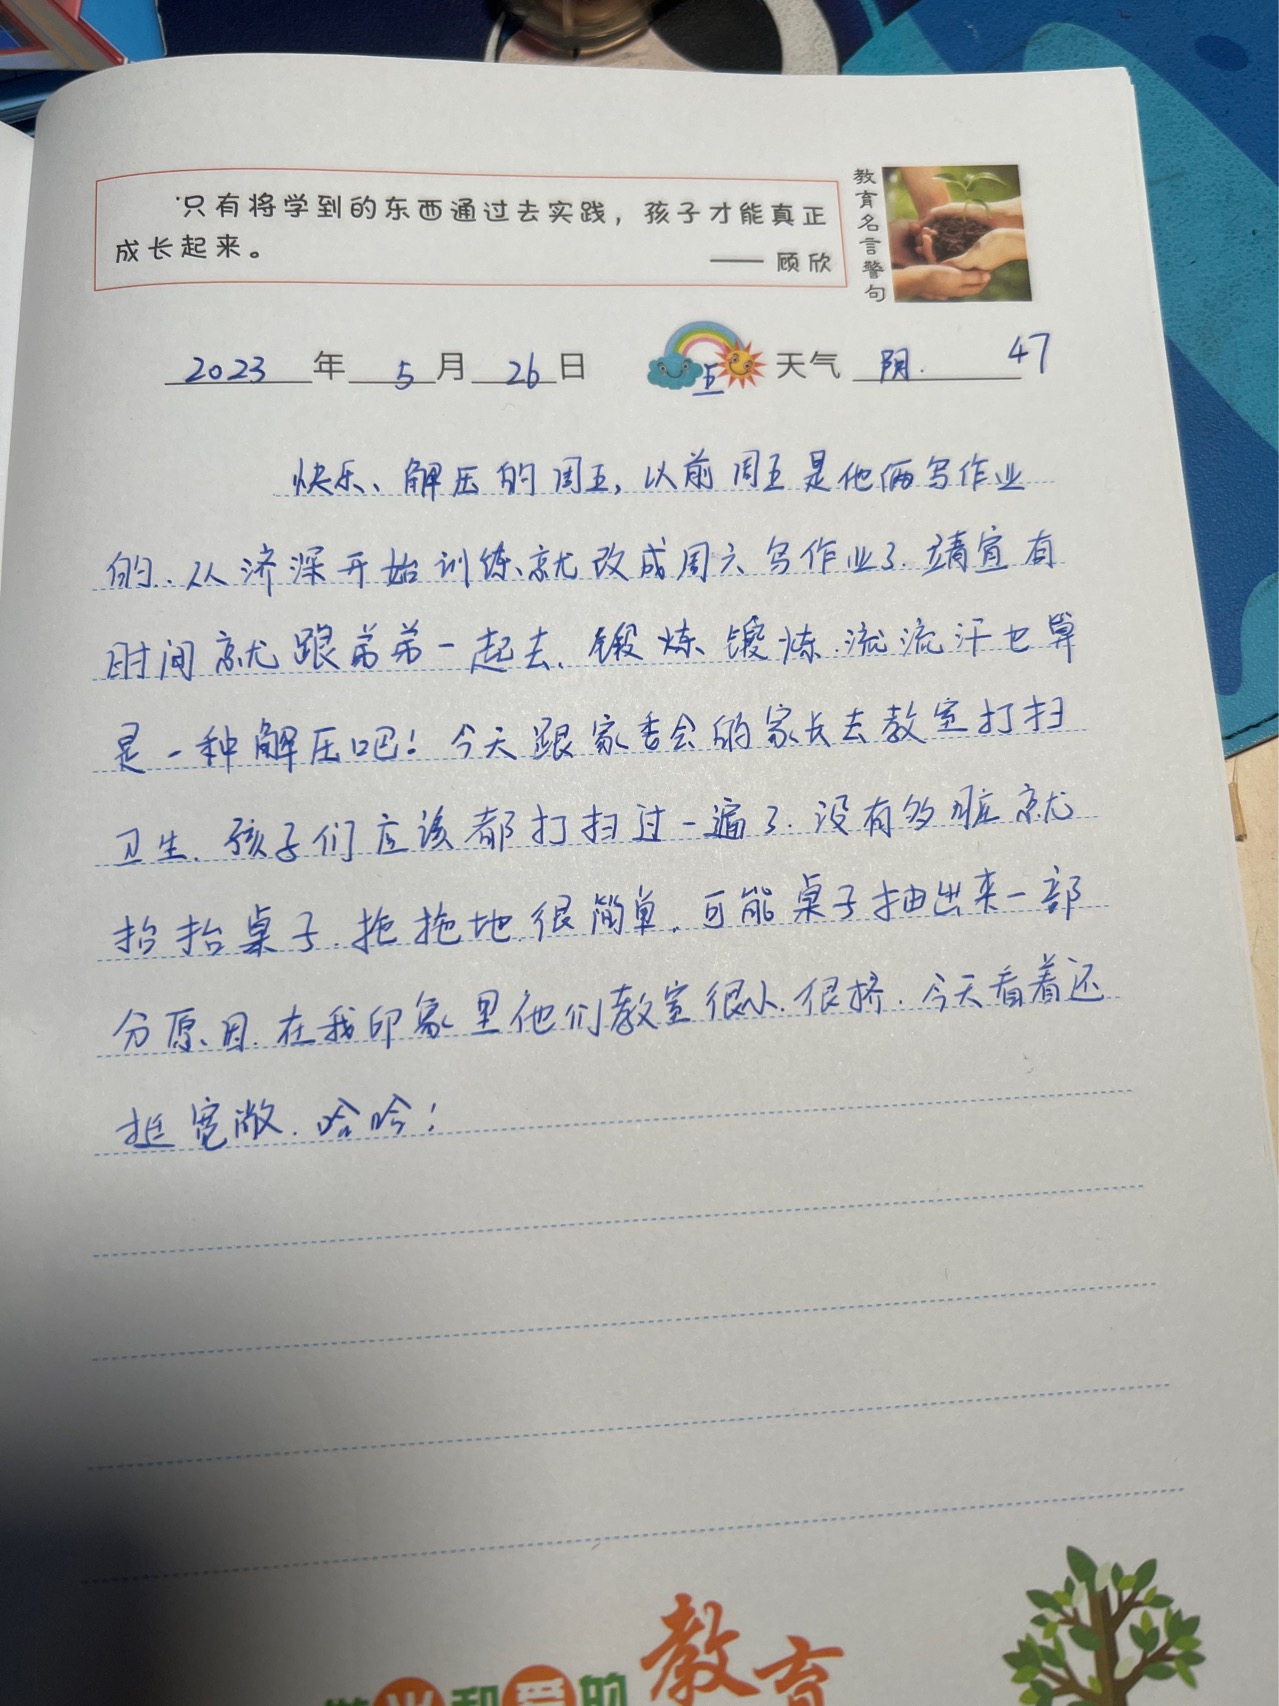 只有将学到的东西通过去实践，孩子才能真正
成长起来。
—— 顾欣
教育名言警句
2023年5月26日 五 天气 阴.
47
快乐、解压的周五，以前周五是他俩写作业
的.从济深开始训练就改成周六写作业了.靖宜有
时间就跟弟弟一起去.锻炼锻炼.流流汗也算
是一种解压吧！今天跟家委会的家长去教室打扫
卫生.孩子们应该都打扫过一遍了.没有多脏就
抬抬桌子.拖拖地.很简单.可能桌子抽出来一部
分原因.在我印象里他们教室很小.很挤.今天看着还
挺宽敞.哈哈！
和爱的教育